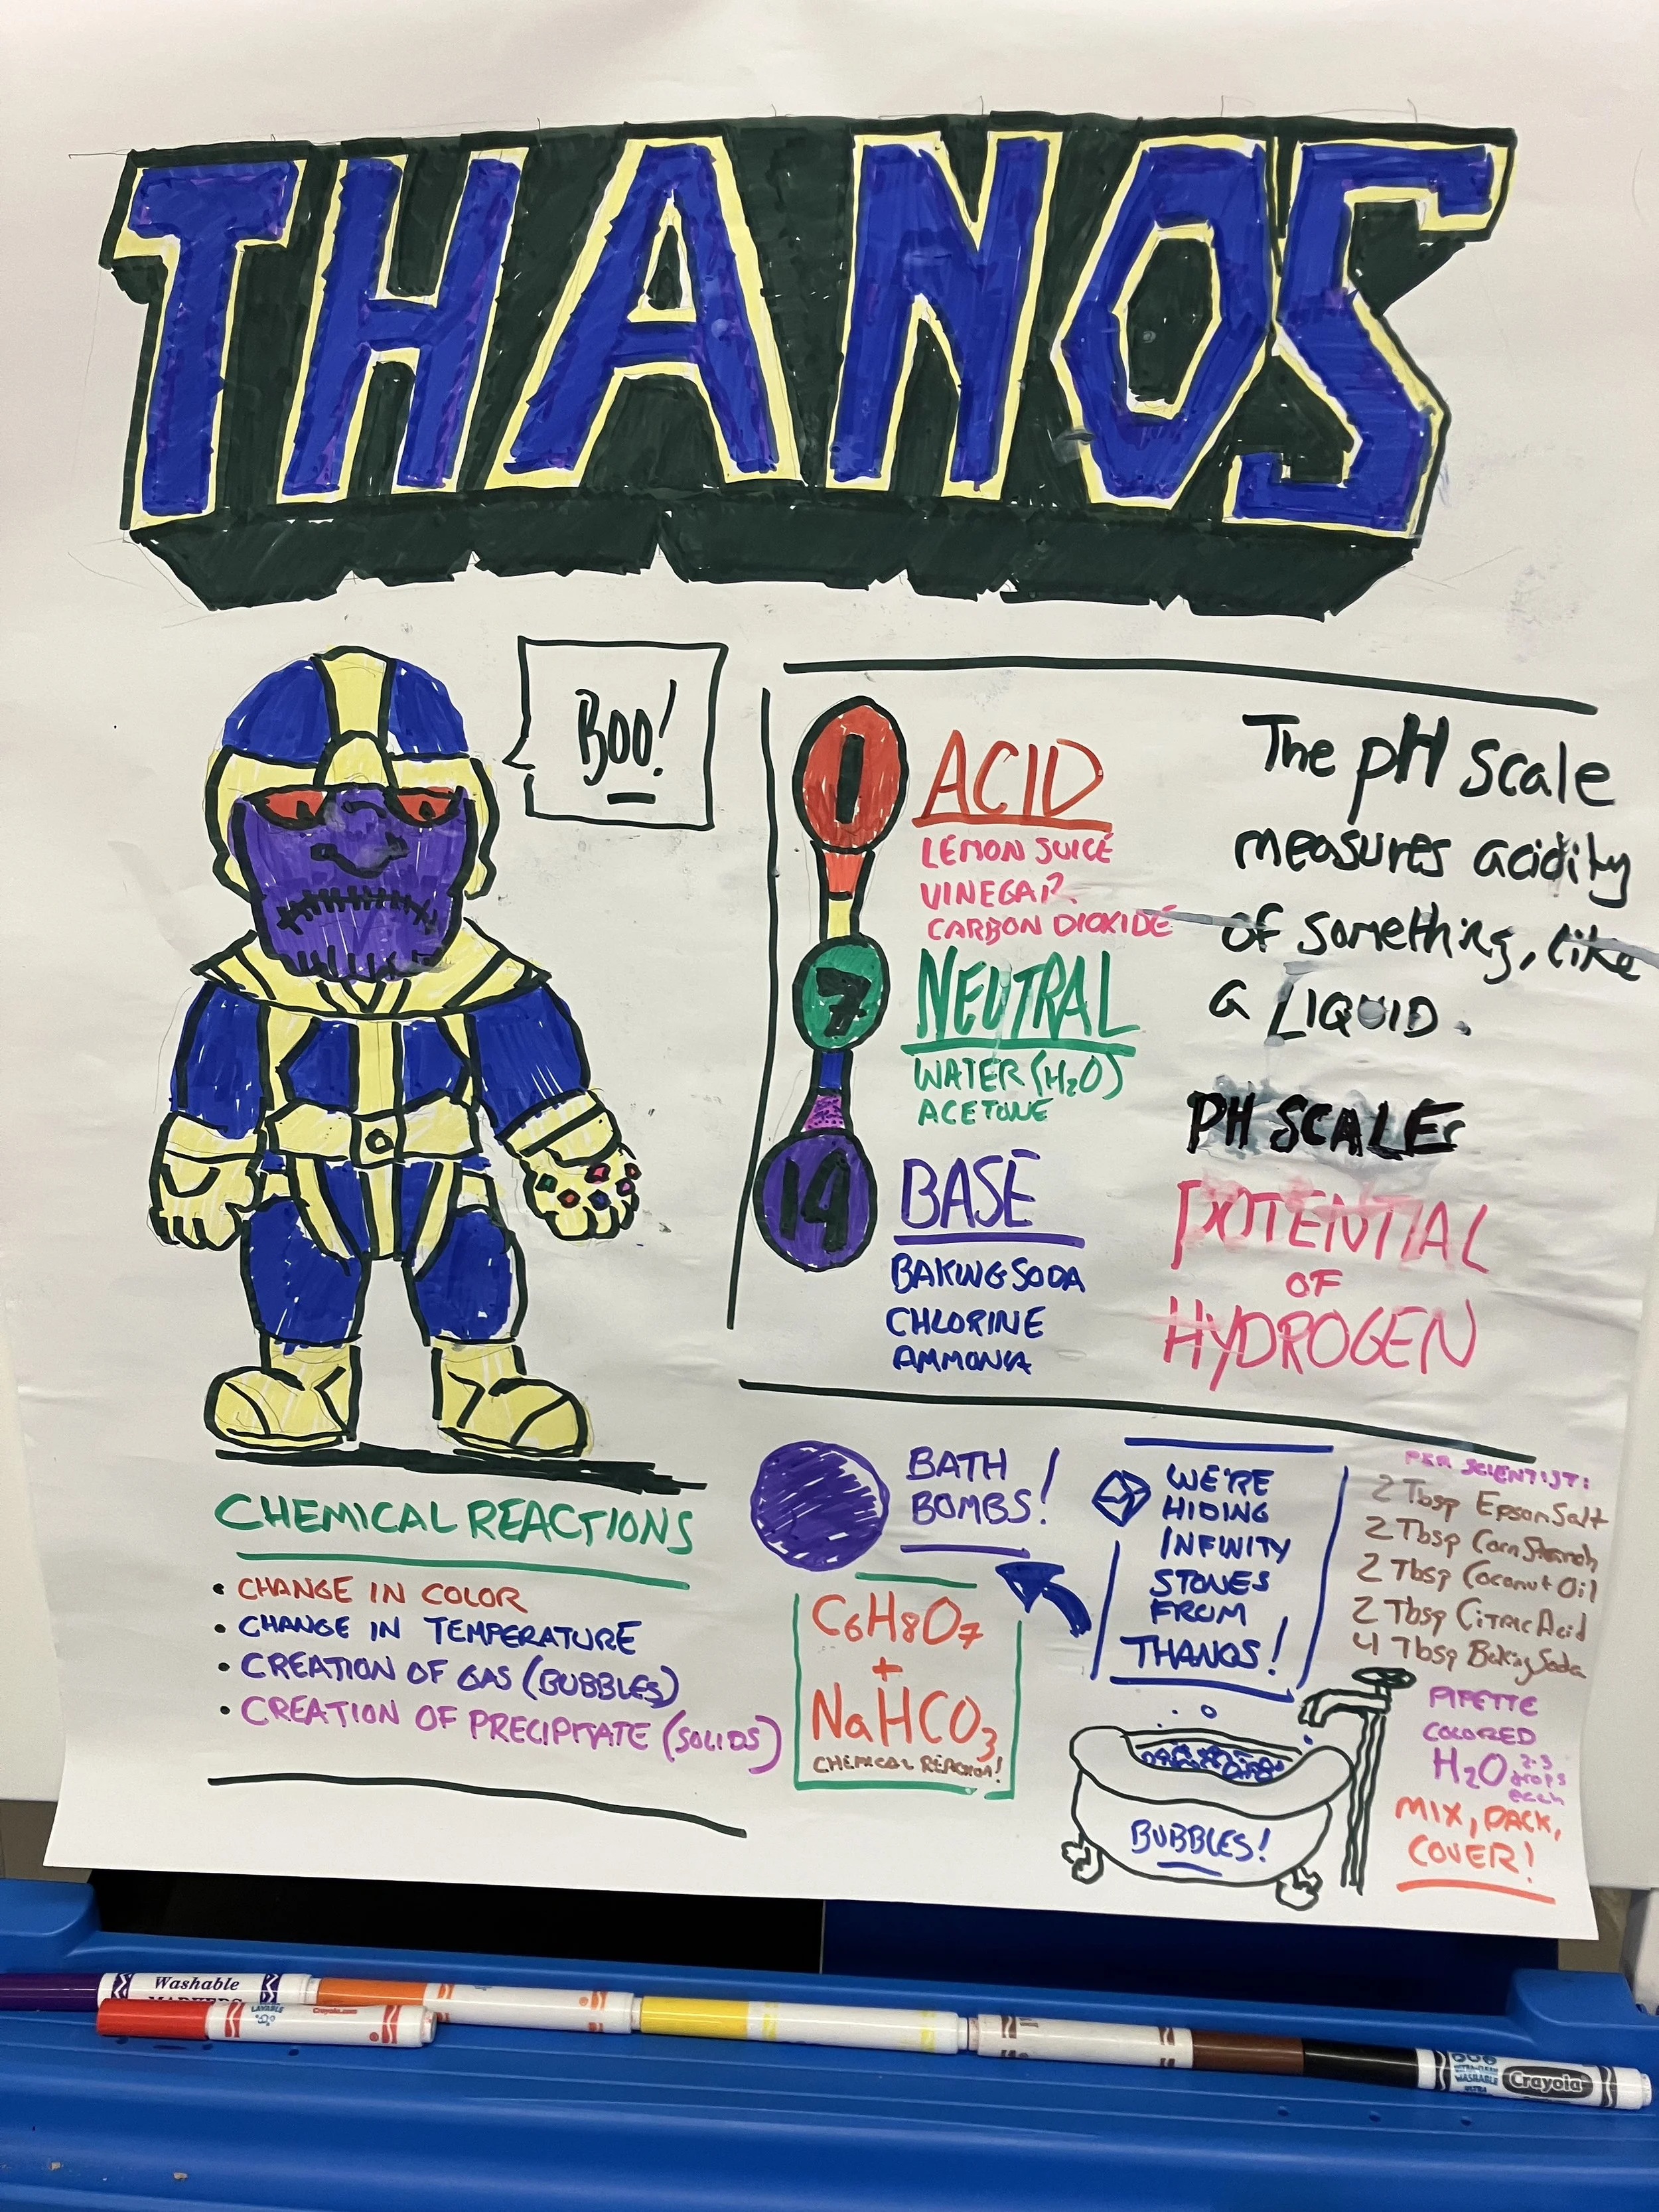 THANOS
BOO!
1
ACID
LEMON JUICE
VINEGAR
CARBON DIOXIDE
7
NEUTRAL
WATER (H₂O)
ACETONE
14
BASE
BAKING SODA
CHLORINE
AMMONIA
The pH scale
measures acidity
of something, like
a LIQUID.
PH SCALE
POTENTIAL
OF
HYDROGEN
CHEMICAL REACTIONS
• CHANGE IN COLOR
• CHANGE IN TEMPERATURE
• CREATION OF GAS (BUBBLES)
• CREATION OF PRECIPITATE (SOLIDS)
BATH
BOMBS!
C6H8O7
+
NaHCO3
CHEMICAL REACTION!
WE'RE
HIDING
INFINITY
STONES
FROM
THANOS!
BUBBLES!
PER SCIENTIST:
2 Tbsp Epsom Salt
2 Tbsp Corn Starch
2 Tbsp Coconut Oil
2 Tbsp Citric Acid
4 Tbsp Baking Soda
PIPETTE
COLORED
H₂O 2-3
drops
each
MIX, PACK,
COVER!
Washable
MARKERS
Crayola.com
Crayola